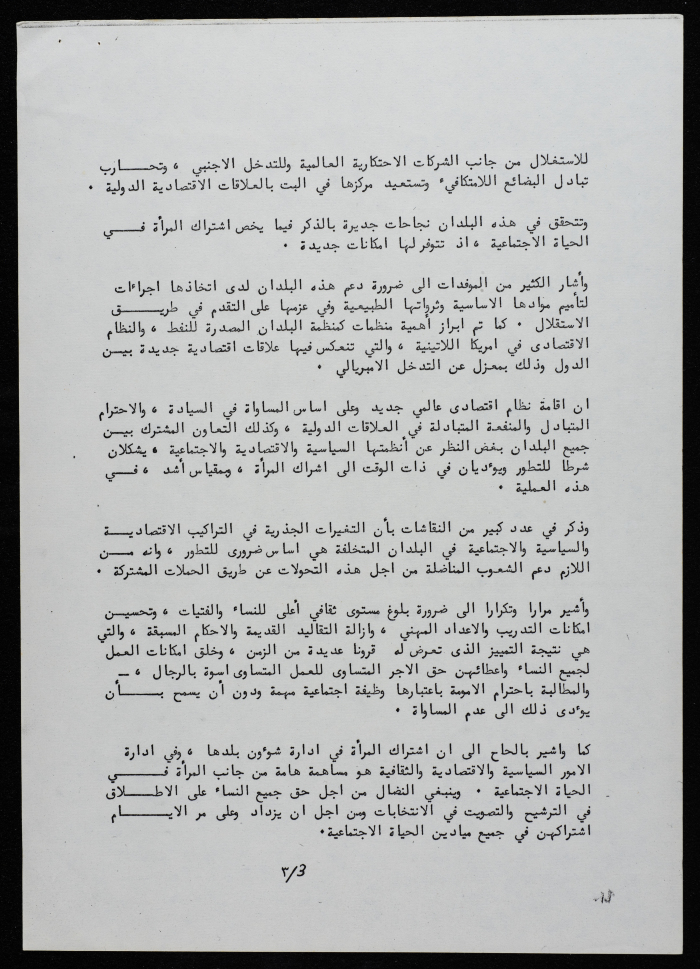 للاستغلال من جانب الشركات الاحتكارية العالمية وللتدخل الاجنبي ، وتحـــــارب
تبادل البضائع اللامتكافيء وتستعيد مركزها في البت بالعلاقات الاقتصادية الدولية .
وتتحقق في هذه البلدان نجاحات جديرة بالذكر فيما يخص اشتراك المرأة فـــــي
الحياة الاجتماعية ، اذ تتوفر لها امكانات جديدة .
وأشار الكثير من الموفدات الى ضرورة دعم هذه البلدان لدى اتخاذها اجراءات
لتأميم موادها الاساسية وثرواتها الطبيعية وفي عزمها على التقدم في طريـــــق
الاستقلال . كما تم ابراز أهمية منظمات كمنظمة البلدان المصدرة للنفط ، والنظام
الاقتصادى في امريكا اللاتينية ، والتي تنعكس فيها علاقات اقتصادية جديدة بيـــن
الدول وذلك بمعزل عن التدخل الامبريالي .
ان اقامة نظام اقتصادى عالمي جديد وعلى اساس المساواة في السيادة ، والاحترام
المتبادل والمنفعة المتبادلة في العلاقات الدولية ، وكذلك التعاون المشترك بيـــن
جميع البلدان بغض النظر عن أنظمتها السياسية والاقتصادية والاجتماعية ، يشكلان
شرطا للتطور ويوءديان في ذات الوقت الى اشراك المرأة ، وبمقياس أشد ، فـــــي
هذه العملية .
وذكر في عدد كبير من النقاشات بأن التغيرات الجذرية في التراكيب الاقتصاديـــة
والسياسية والاجتماعية في البلدان المتخلفة هي اساس ضرورى للتطور ، وانه مـــن
اللازم دعم الشعوب المناضلة من اجل هذه التحولات عن طريق الحملات المشتركة .
وأشير مرارا وتكرارا الى ضرورة بلوغ مستوى ثقافي أعلى للنساء والفتيات ، وتحسيـن
امكانات التدريب والاعداد المهني ، وازالة التقاليد القديمة والاحكام المسبقة ، والتي
هي نتيجة التمييز الذى تعرض له قرونا عديدة من الزمن ، وخلق امكانات العمل
لجميع النساء واعطائهن حق الاجر المتساوى للعمل المتساوى اسوة بالرجال ، ــ
والمطالبة باحترام الامومة باعتبارها وظيفة اجتماعية مهمة ودون أن يسمح بـــــأن
يوءدى ذلك الى عدم المساواة .
كما واشير بالحاح الى ان اشتراك المرأة في ادارة شوءون بلدها ، وفي ادارة
الامور السياسية والاقتصادية والثقافية هو مساهمة هامة من جانب المرأة فـــــي
الحياة الاجتماعية . وينبغي النضال من اجل حق جميع النساء على الاطـــــلاق
في الترشيح والتصويت في الانتخابات ومن اجل ان يزداد وعلى مر الايـــــام
اشتراكهن في جميع ميادين الحياة الاجتماعية.
٣/3